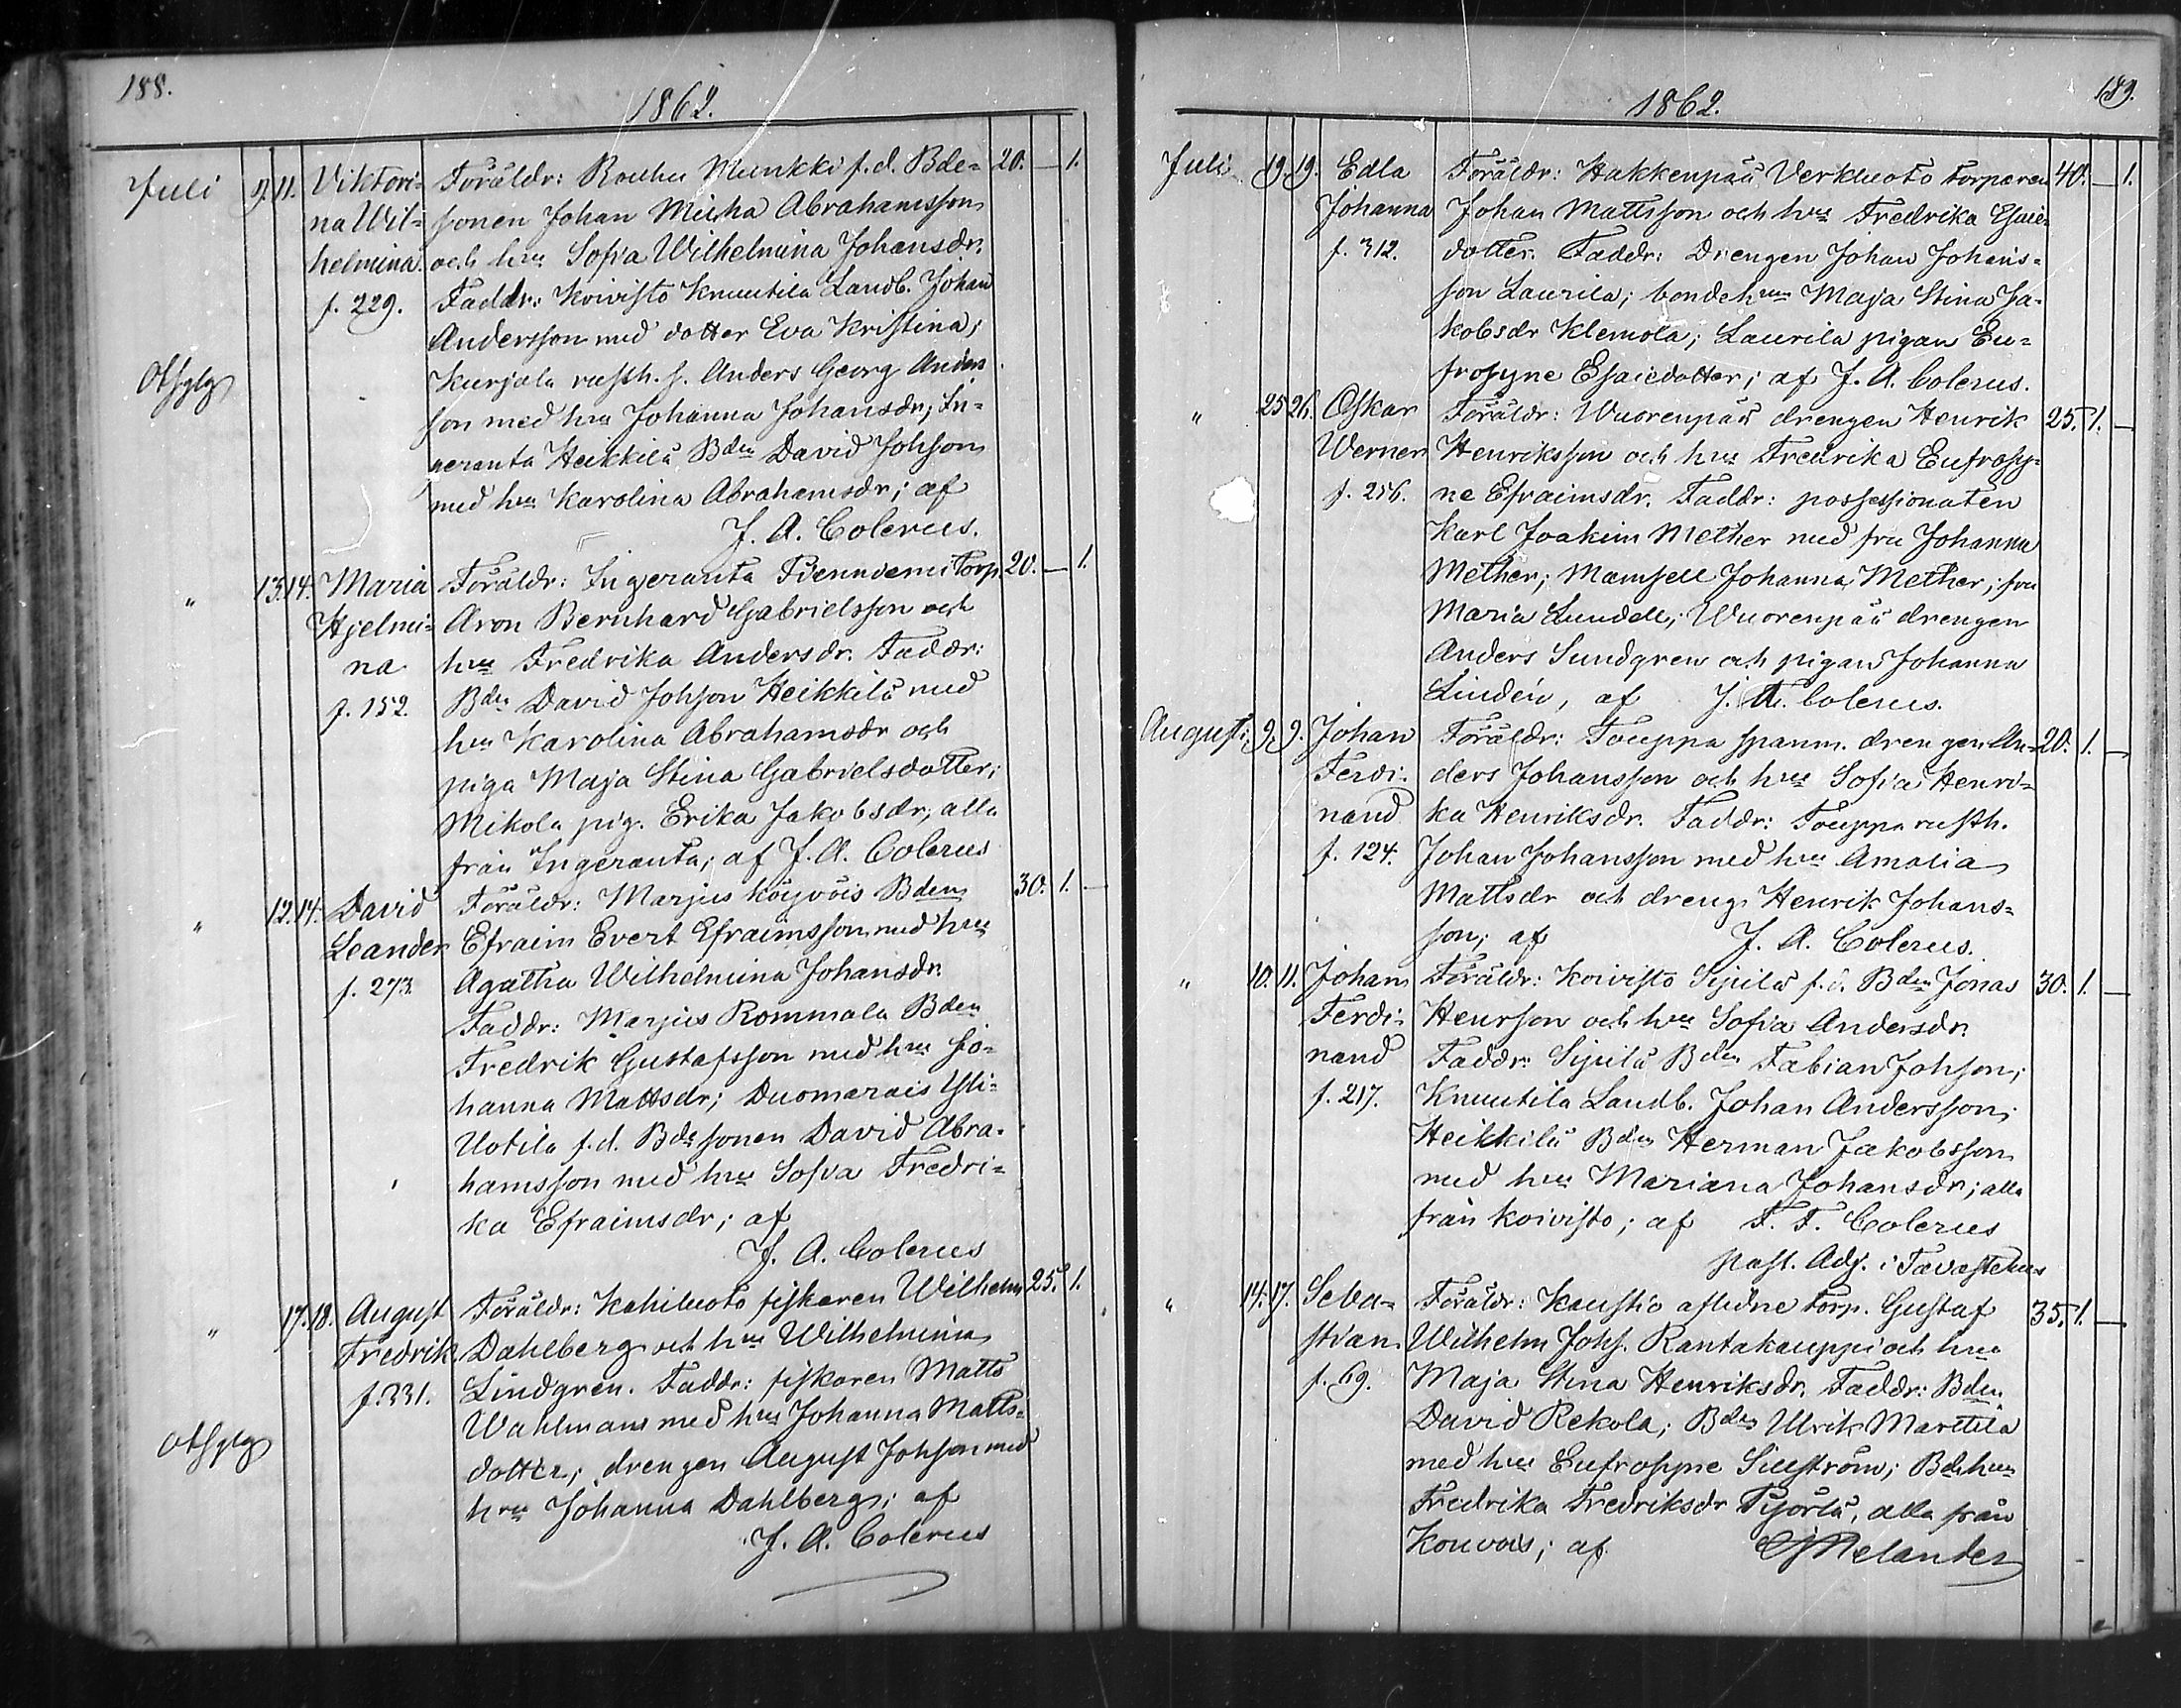 188.
1862.
Juli 9. 11. Viktori- Föräldr: Rauhu Munkki f.d. Bde- 20. — 1.
na Wil- sonen Johan Mickä Abrahamsson
helmina. och hru Sofia Wilhelmina Johansdr.
f. 229. Faddr: Koivisto Knuutila Landb. Johan
Andersson med dotter Eva Kristina;
Kurjala rusth. s. Anders Georg Anders
son med hru Johanna Johansdr; In-
geranta Heikkilä Bden David Johsson
med hru Karolina Abrahamsdr; af
J. A. Colerus.
" 13. 14. Maria Föräldr: Ingeranta Torp. 20. — 1.
Hjelmi- Aron Bernhard Gabrielsson och
na hru Fredrika Andersdr. Faddr:
f. 152. Bden David Johsson Heikkilä med
hru Karolina Abrahamsdr och
piga Maja Stina Gabrielsdotter;
Mikola pig. Erika Jakobsdr, alla
från Ingeranta; af J. A. Colerus
" 12. 14. David Föräldr: Marjus Köijvöis Bden 30. 1. —
Leander Efraim Evert Efraimsson med hru
f. 273. Agatha Wilhelmina Johansdr.
Faddr: Marjus Rommala Bden
Fredrik Gustafsson med hru Jo-
hanna Mattsdr; Duomarais Yli-
Uotila f.d. Bdesonen David Abra-
hamsson med hru Sofia Fredri-
ka Efraimsdr; af
J. A. Colerus
" 17. 18. August Föräldr: Kahiluoto fiskaren Wilhelm 25. 1.
Fredrik Dahlberg och hru Wilhelmina
f. 331. Lindgren. Faddr: fiskaren Matts
Wahlman med hru Johanna Matts-
dotter; drengen August Johsson med
hru Johanna Dahlberg; af
J. A. Colerus
189.
1862.
Juli 19. 19. Edla Föräldr: Hakkenpää Verkluoto torparen 40. — 1.
Johanna Johan Mattsson och hru Fredrika Esaie-
f. 312. dotter. Faddr: Drengen Johan Johans-
son Laurila; bondehrun Maja Stina Ja-
kobsdr Klemola; Laurila pigan Eu-
frosyne Esaiedotter; af J. A. Colerus.
" 25. 26. Oskar Föräldr: Wuorenpää drengen Henrik 25. 1. —
Werner Henriksson och hru Fredrika Eufrosy-
f. 256. ne Efraimsdr. Faddr: possessionaten
Karl Joakim Mether med fru Johanna
Mether; Mamsell Johanna Mether; fru
Maria Lundell; Wuorenpää drengen
Anders Sundgren och pigan Johanna
Lindén, af J. A. Colerus.
Augusti 9. 9. Johan Föräldr: Touppa spanm. drengen An- 20. 1. —
Ferdi- ders Johansson och hru Sofia Henri-
nand ka Henriksdr. Faddr: Touppa rusth.
f. 124. Johan Johansson med hru Amalia
Mattsdr och dreng. Henrik Johans-
son; af J. A. Colerus.
" 10. 11. Johan Föräldr: Koivisto Sipilä f.d. Bden Jonas 30. 1. —
Ferdi- Henrsson och hru Sofia Andersdr.
nand Faddr: Sipilä Bden Fabian Johsson;
f. 217. Knuutila Landb. Johan Andersson;
Heikkilä Bden Herman Jakobsson
med hru Mariana Johansdr; alla
från Koivisto; af F. F. Colerus
Past. Adj. i Tavastehus
" 14. 17. Seba- Föräldr: Kaustio aflidne torp. Gustaf 35. 1. —
stian Wilhelm Johs. Rantakauppi och hru
f. 69. Maja Stina Henriksdr. Faddr: Bden
David Rekola; Bden Ulrik Marttila
med hru Eufrosyne Silfström; Bdehrun
Fredrika Fredriksdr Pijörlä, alla från
Kouvois; af Melander